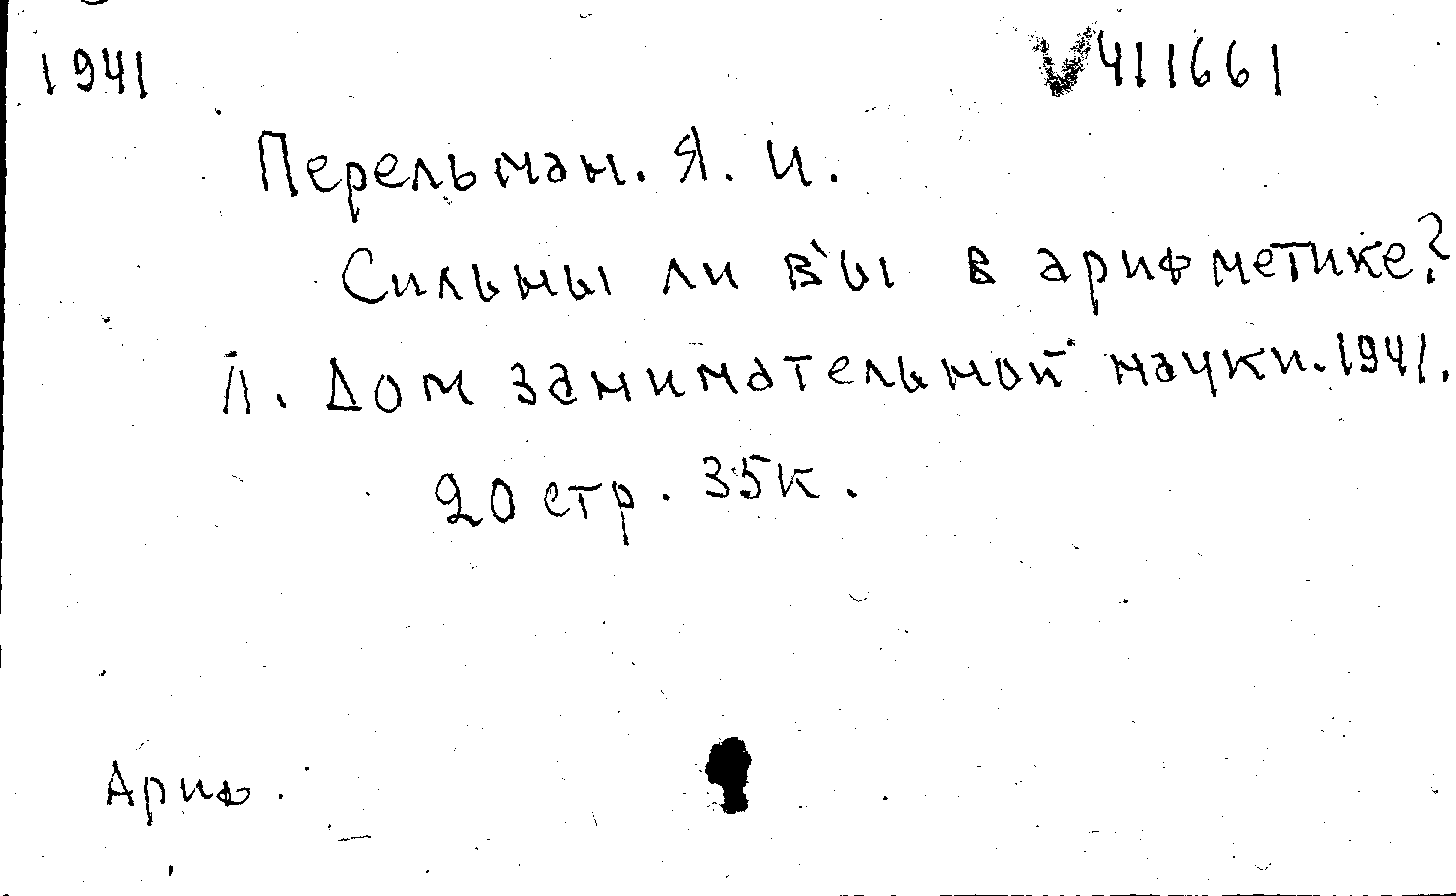 1941 V411661
Перельман. Я. И.
Сильны ли вы в арифметике?
Л. Дом занимательной науки. 1941.
20 стр. 35к.
Ариф.